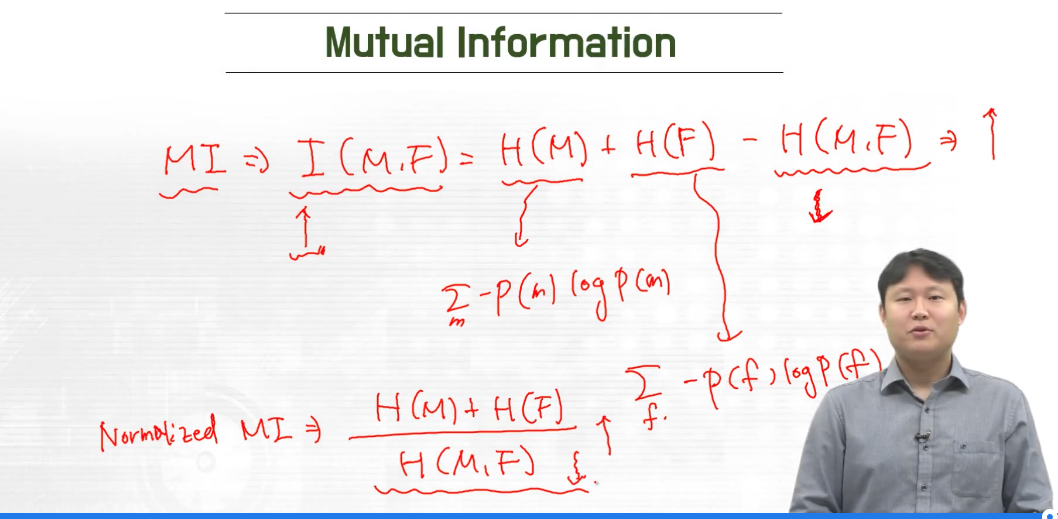 Mutual Information
MI ⇒ I(M,F) = H(M) + H(F) - H(M,F) ⇒ ↑
Σ_m -P(m) log P(m)
Σ_f. -P(f) log P(f)
Normalized MI ⇒ H(M) + H(F) / H(M,F) ↑